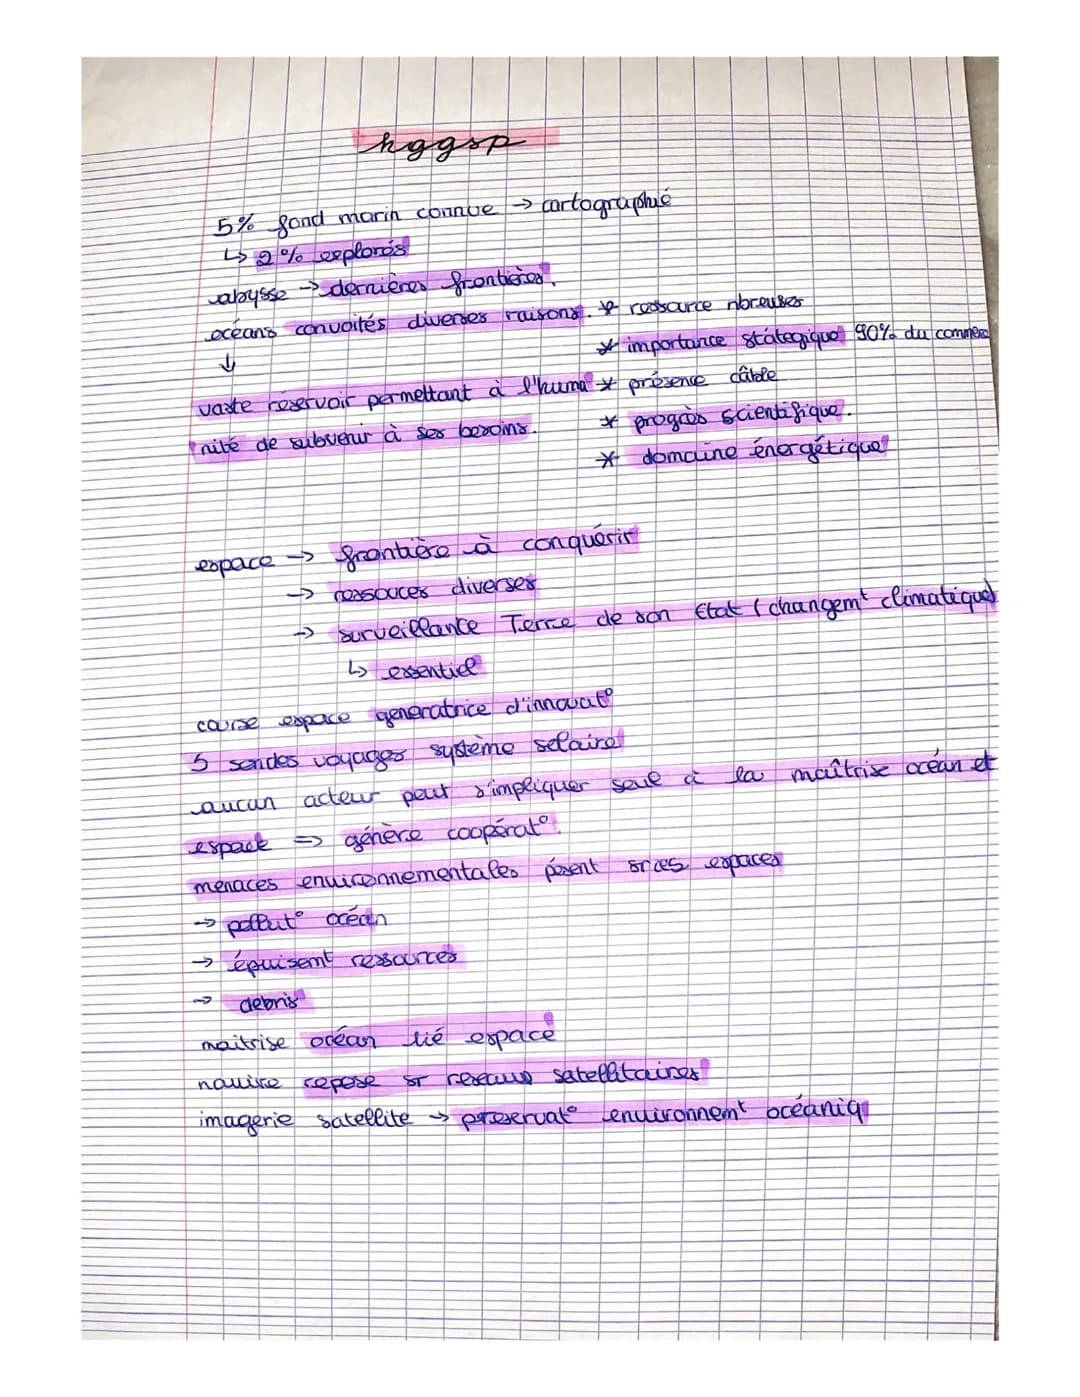 hggsp
5% fond marin connue → cartographié
↳ 2% explorés
abysse → dernières frontières.
océans convoités diverses raisons. * ressource nbreuses
↓ * importance státegique 90% du commerce
vaste réservoir permettant à l'huma * présence câble
nité de subvenir à ses besoins. * progrès scientifique.
* domaine énergétique
espace → frontière à conquérir
→ ressouces diverses
→ surveillance Terre de son Etat (changemt climatique)
↳ essentiel
course espace generatrice d'innovat°
5 sondes voyages système solaire
aucun acteur peut s'impliquer seul à la maîtrise océan et
espace => génère coopérat°.
menaces environnementales pèsent sr ces espaces
→ pollut° océan
→ épuisemt ressources
→ debris
maitrise océan lié espace
navire repose sr reseaux satellitaires
imagerie satellite → preservat° environnemt océaniq